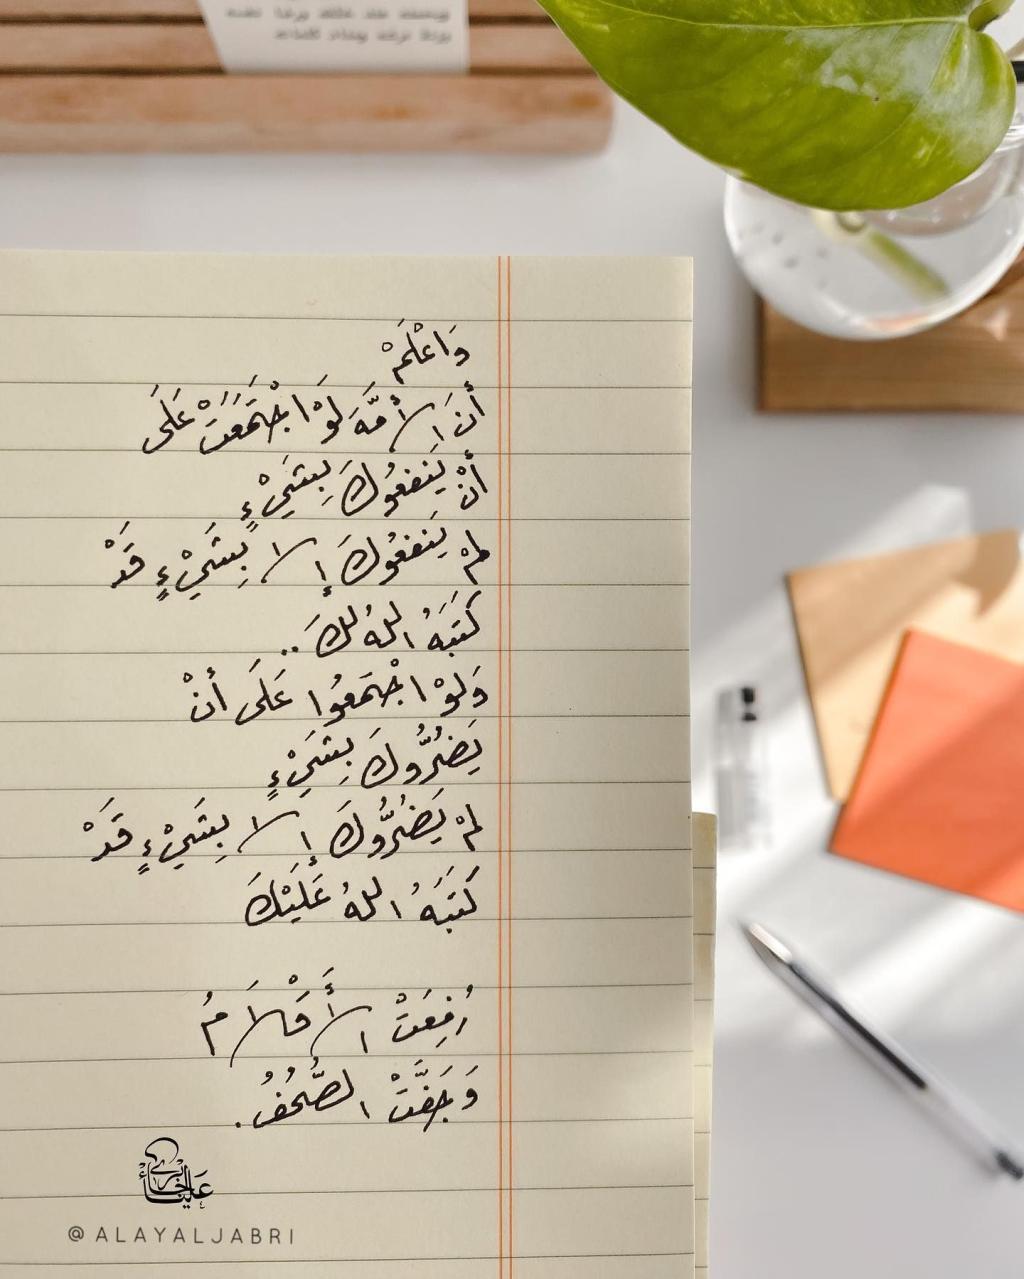 وَاعْلَمْ
أَنَّ الأُمَّةَ لَوْ اجْتَمَعَتْ عَلَى
أَنْ يَنْفَعُوكَ بِشَيْءٍ
لَمْ يَنْفَعُوكَ إِلا بِشَيْءٍ قَدْ
كَتَبَهُ اللهُ لَكَ..
وَلَوْ اجْتَمَعُوا عَلَى أَنْ
يَضُرُّوكَ بِشَيْءٍ
لَمْ يَضُرُّوكَ إِلا بِشَيْءٍ قَدْ
كَتَبَهُ اللهُ عَلَيْكَ
رُفِعَتْ الأَقْلامُ
وَجَفَّتْ الصُّحُفُ.
@ALAYALJABRI